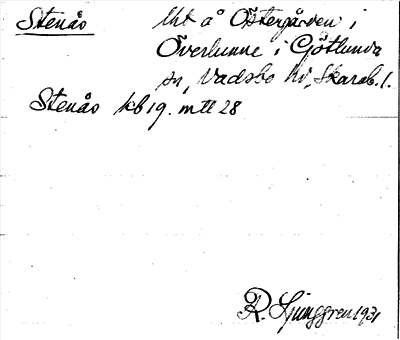 Stenås Lht å Östergården i
Överlunne i Götlunda
sn, Vadsbo hd, Skarab. l.
Stenås kb 19. mtl 28
R. Ljunggren 1931